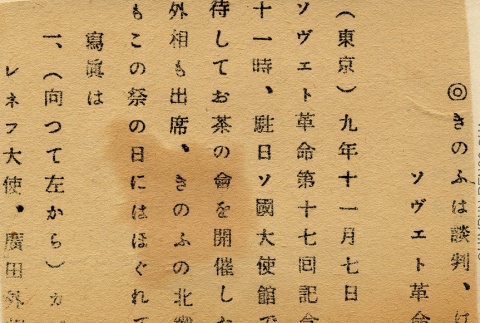 ◎きのふは談判、け
ソヴェト革命
（東京）九年十一月七日
ソヴェト革命第十七回記念
十一時、駐日ソ國大使館で
待してお茶の會を開催した
外相も出席、きのふの北鐵
もこの祭の日にはほぐれて
寫眞は
一、（向つて左から）カ
レネフ大使、廣田外相